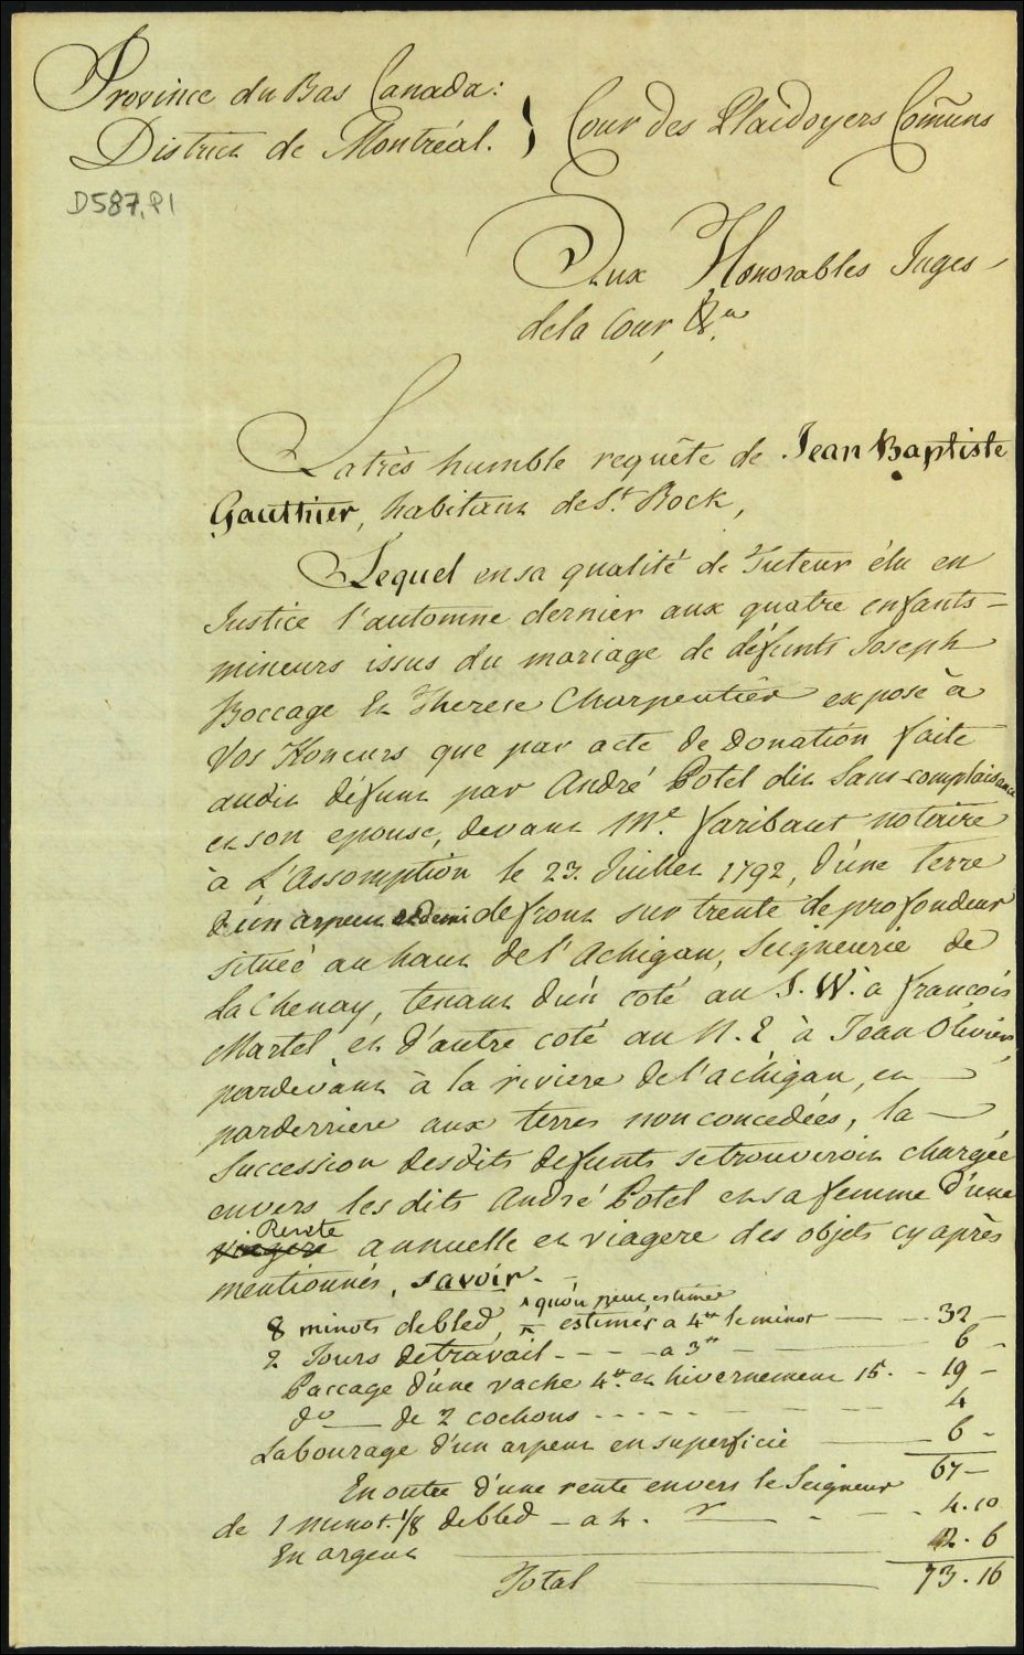 Province du Bas Canada:
District de Montréal. } Cour des Plaidoyers Com̃uns
D587,P1
Aux Honorables Juges
dela Cour &.ª
La très humble requête de Jean Baptiste
Gauthier, habitant de St. Rock,
Lequel en sa qualité de Tuteur élu en
Justice l'automne dernier aux quatre enfants
mineurs issus du mariage de défunts Joseph
Boccage et Therese Charpentier expose à
Vos Honeurs que par acte de Donation faite
audit défunt par André Potel dit Sans-complaisance
et son epouse, devant Me. Faribaut notaire
à L'Assomption le 23. Juillet 1792, d'une terre
d'un arpent et demi de front sur trente de profondeur
située au haut de l'Achigan, Seigneurie de
La Chenay, tenant d'un coté au S. W. a françois
Martel et d'autre coté au N. E à Jean Olivier,
pardevant à la riviere de l'achigan, et
parderriere aux terres non concedées, la
Succession desdits defunts se trouveroit chargée
envers les dits André Potel et sa femme d'une
Rente
viagere annuelle et viagere des objets cy après
mentionnés, savoir.
qu'on peut estimer
8 minots de bled, estimés a 4tt le minot 32
2 Jours de travail - - - a 3tt 6
Paccage d'une vache 4tt et hivernement 15. - 19 -
do de 2 cochons - - - - 4
Labourage d'un arpent en superficie 6 -
67 -
En outre d'une rente envers le Seigneur
de 1 minot. 1/8 de bled - a 4. 4.10
En argent 2. 6
Total 73.16